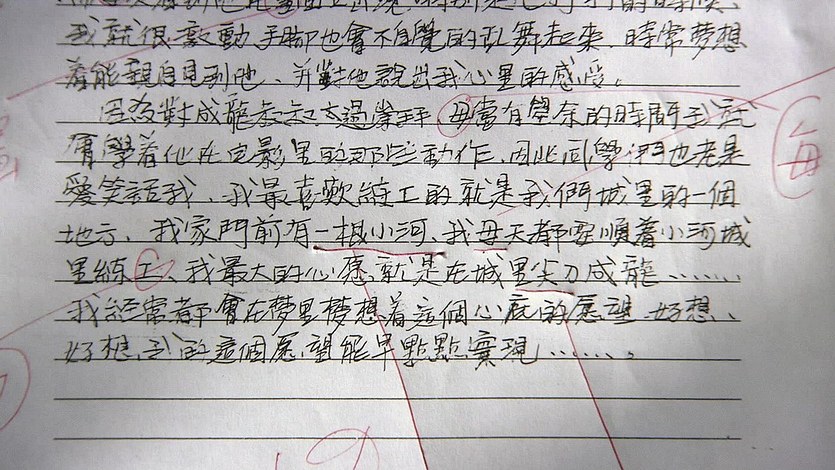 我就很激動手腳也會不自覺的亂舞起來.時常夢想
着能親自見到他、并對他說出我心里的感受。
因為對成龍叔叔太過崇拜.每當有空余的時間我就
會學着他在電影里的那些動作.因此同學們也老是
愛笑話我、我最喜歡練工的就是我們城里的一個
地方、我家門前有一根小河、我每天都要順着小河城
里練工、我最大的心愿、就是在城里 成龍……
我經常都會在夢里夢想着這個心底的愿望.好想、
好想、我的這個愿望能早點點實現……。
每